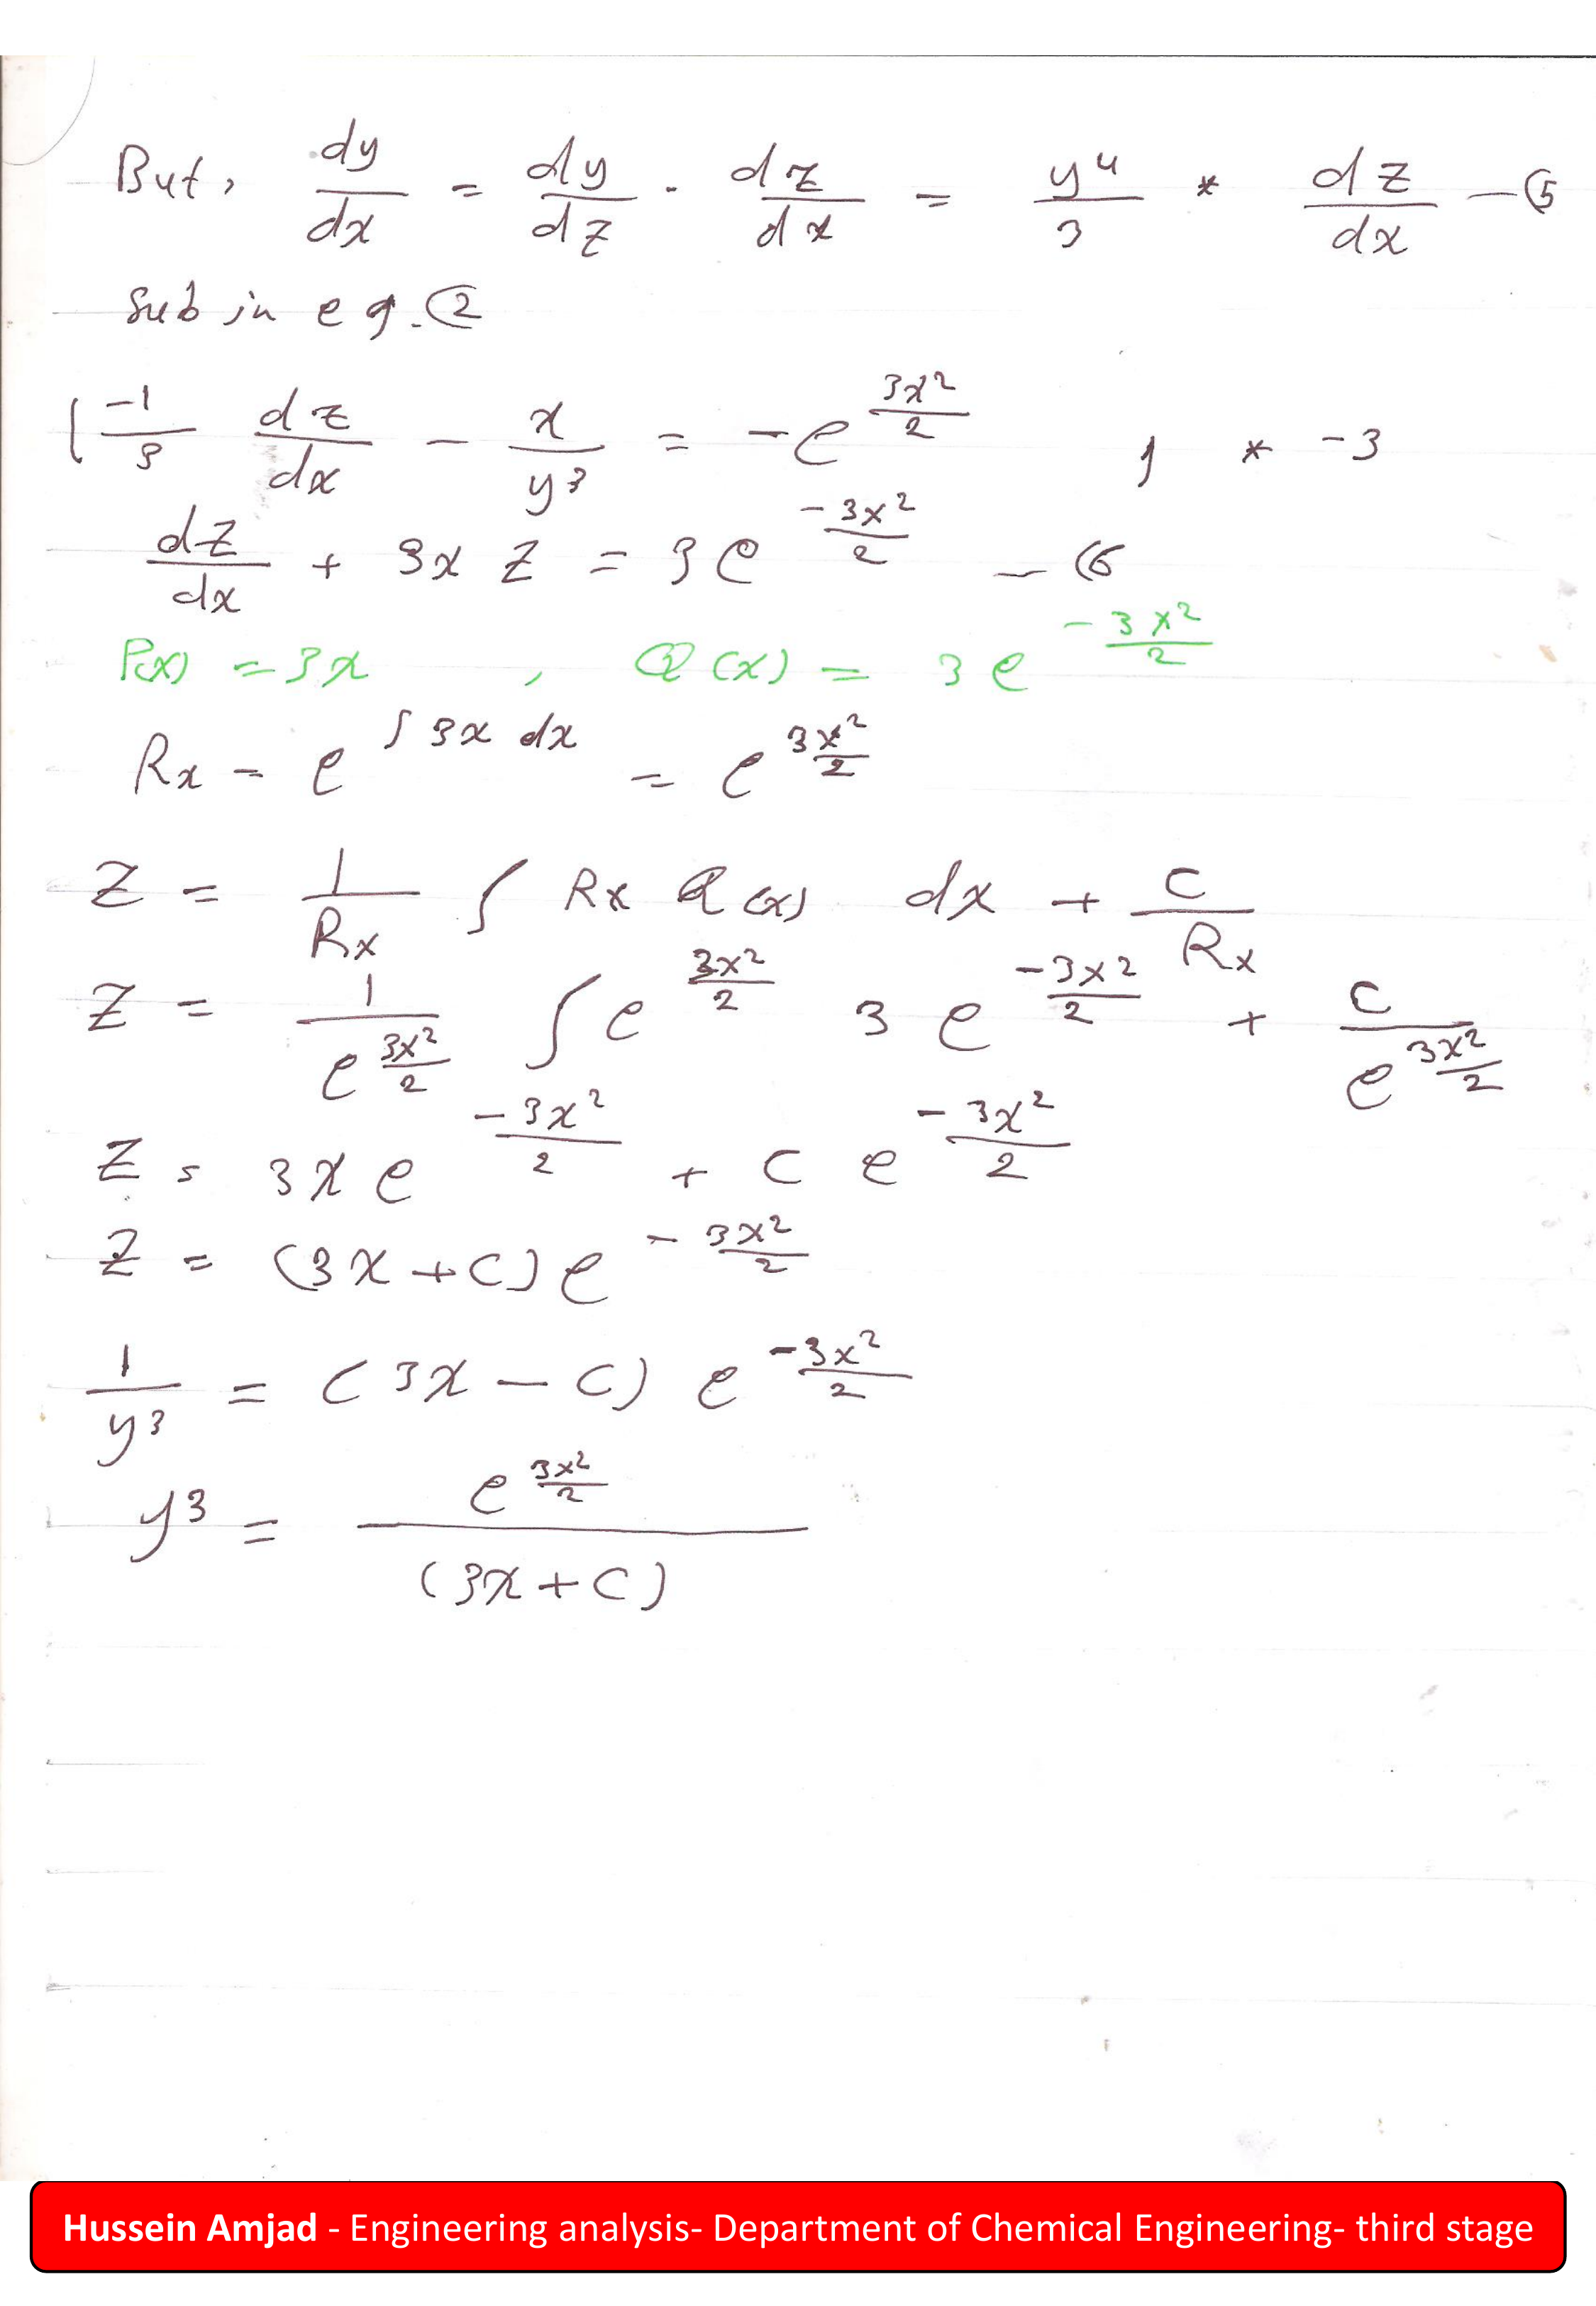 But, dy/dx = dy/dz · dz/dx = y⁴/3 * dz/dx — (5
Sub in eq. (2
( -1/3 dz/dx - x/y³ = -e^(3x²/2) ) * -3
dz/dx + 3x z = 3 e^(-3x²/2) — (6
P(x) = 3x , Q(x) = 3 e^(-3x²/2)
Rx = e^(∫ 3x dx) = e^(3x²/2)
Z = 1/Rx ∫ Rx Q(x) dx + c/Rx
Z = 1/e^(3x²/2) ∫ e^(3x²/2) 3 e^(-3x²/2) + c/e^(3x²/2)
Z = 3x e^(-3x²/2) + c e^(-3x²/2)
Z = (3x + c) e^(-3x²/2)
1/y³ = (3x - c) e^(-3x²/2)
y³ = e^(3x²/2) / (3x + c)
Hussein Amjad - Engineering analysis- Department of Chemical Engineering- third stage